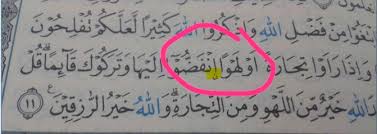 بْتَغُوا مِن فَضْلِ اللَّهِ وَاذْكُرُوا اللَّهَ كَثِيرًا لَّعَلَّكُمْ تُفْلِحُونَ
وَإِذَا رَأَوْا تِجَارَةً أَوْ لَهْوًا انفَضُّوا إِلَيْهَا وَتَرَكُوكَ قَائِمًا ۚ قُلْ
اللَّهِ خَيْرٌ مِّنَ اللَّهْوِ وَمِنَ التِّجَارَةِ ۚ وَاللَّهُ خَيْرُ الرَّازِقِينَ ١١